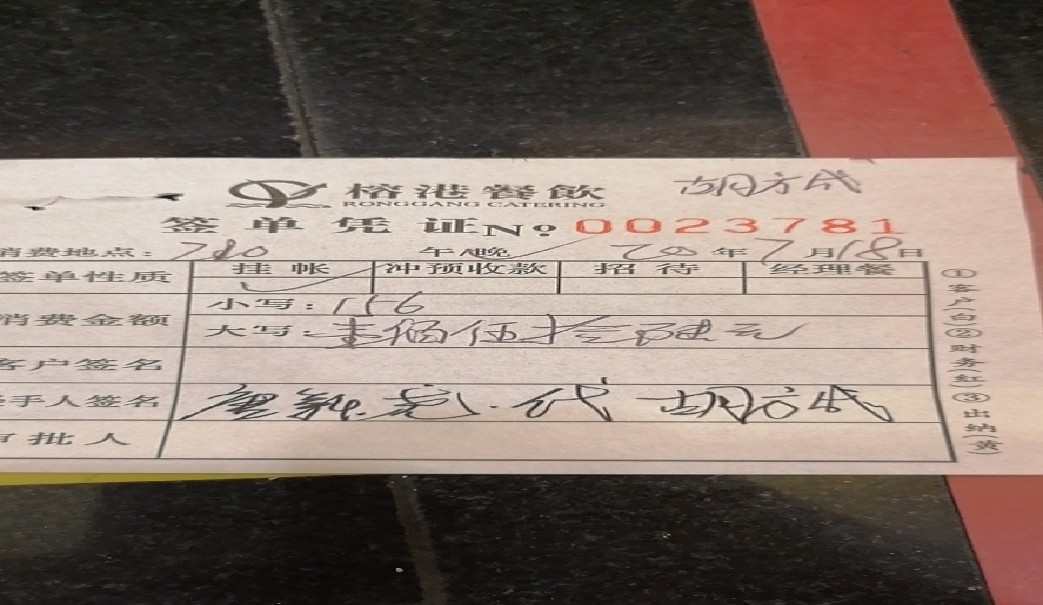 榕港餐飲 胡方代
RONGGANG CATERING
签单凭证 No 0023781
消费地点：780 午/晚 2020年7月18日
签单性质 挂帐 冲预收款 招待 经理餐
消费金额 小写：156
大写：壹佰伍拾陆元
客户签名
经手人签名 代 胡方代
审批人
①客户(白)②财务(红)③出纳(黄)